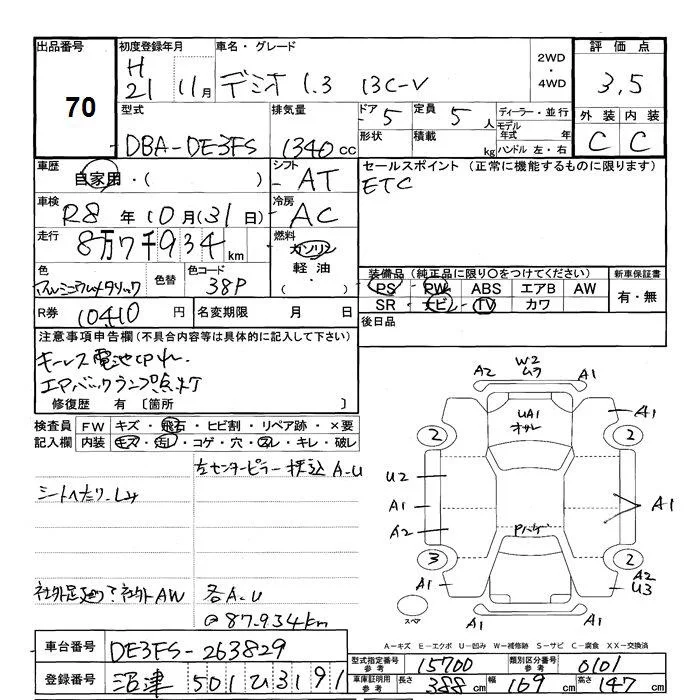 出品番号 初度登録年月 車名・グレード 2WD・4WD 評価点
70 H21 11月 デミオ 1.3 13C-V 3,5
型式 排気量 ドア 定員 ディーラー・並行 外装 内装
DBA-DE3FS 1340cc 5 5人 モデル年式 年 C C
形状 積載 kg ハンドル 左・右
車歴 自家用・( ) シフト AT セールスポイント (正常に機能するものに限ります)
ETC
車検 R8年10月(31日) 冷房 AC
走行 8万7千934km 燃料 ガソリン 軽油・( )
色 アルミニウムメタリック 色替 色コード 38P
装備品 (純正品に限り○をつけてください) 新車保証書
PS PW ABS エアB AW 有・無
SR ナビ TV カワ
R券 10410円 名変期限 月 日 後日品
注意事項申告欄(不具合内容等は具体的に記入して下さい)
キーレス電池切れ
エアバックランプ点灯
修復歴 有〔箇所 〕
検査員記入欄 FW キズ・飛石・ヒビ割・リペア跡・×要
内装 キズ・汚レ・コゲ・穴・スレ・キレ・破レ
左センターピラー 押込 A-U
シートへたり、しみ
社外AW 各A-U
@87.934km
W2
A2 A1
UA1
A1
2 2
U2
A1 A1
A2
3 2
A1 A2
U3
A1 A1
スペア
A-キズ E-エクボ U-凹み W-補修跡 S-サビ C-腐食 XX-交換済
車台番号 DE3FS-263829
型式指定番号 参考 15700 類別区分番号 参考 0101
登録番号 沼津 501 ひ 3191
車庫証明用 参考 長さ 388cm 幅 169cm 高さ 147cm